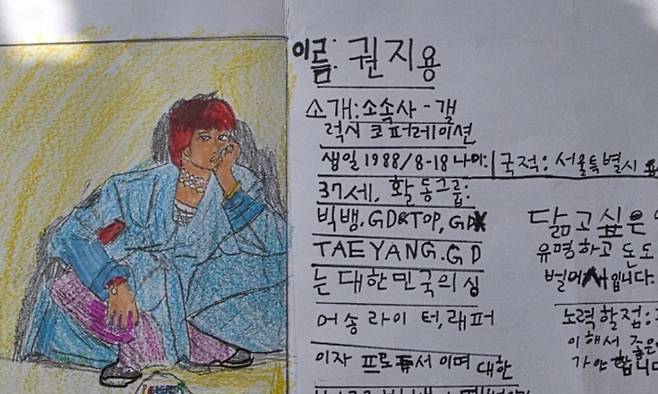 이름: 권지용
소개: 소속사 - 갤
럭시 코퍼레이션
생일 1988/8-18 나이:
37세, 활동그룹:
빅뱅, GD&TOP, GDX
TAEYANG. GD
는 대한민국의 싱
어송라이터, 래퍼
이자 프로듀서 이며 대한
국적: 서울특별시
닮고싶은
유명하고 돈도
벌어서입니다.
노력할점:
이해서
가야합니다